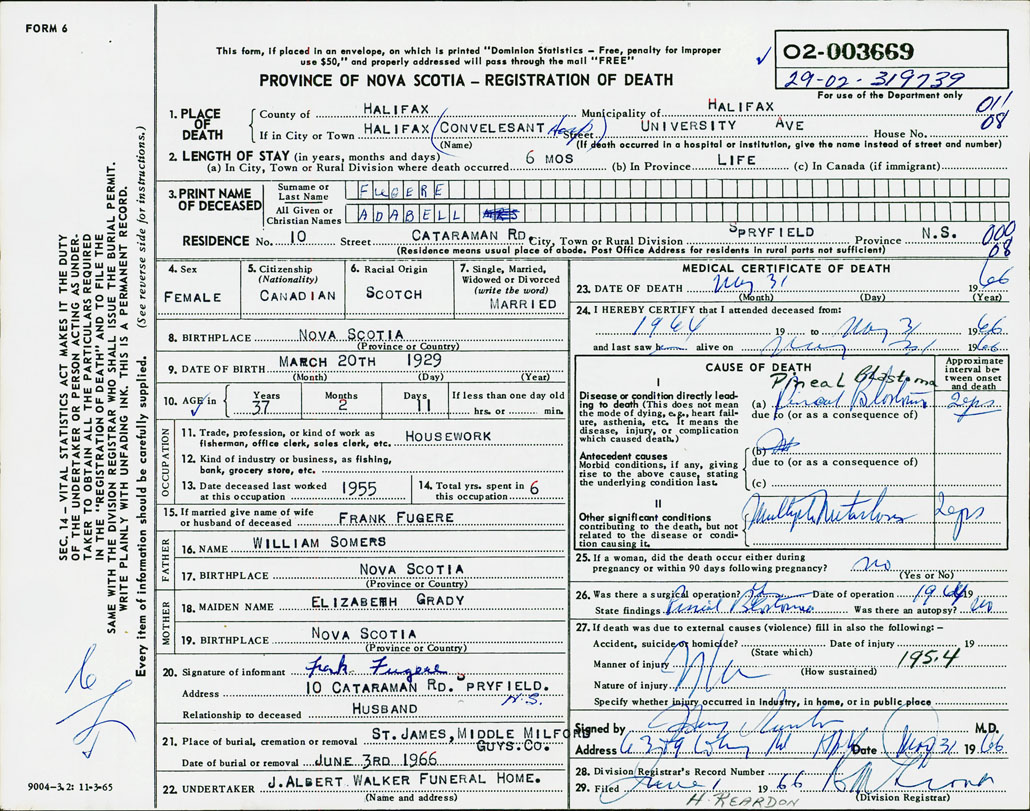 FORM 6
This form, if placed in an envelope, on which is printed "Dominion Statistics – Free, penalty for improper
use $50," and properly addressed will pass through the mail "FREE"
02-003669
29-02-319739
For use of the Department only
PROVINCE OF NOVA SCOTIA – REGISTRATION OF DEATH
1. PLACE OF DEATH
County of HALIFAX Municipality of HALIFAX 011
If in City or Town HALIFAX (CONVELESANT Hosp) Street UNIVERSITY AVE House No. 08
(Name) (If death occurred in a hospital or institution, give the name instead of street and number)
2. LENGTH OF STAY (in years, months and days)
(a) In City, Town or Rural Division where death occurred 6 MOS (b) In Province LIFE (c) In Canada (if immigrant)
3. PRINT NAME OF DECEASED
Surname or Last Name FUGERE
All Given or Christian Names ADABELL
RESIDENCE No. 10 Street CATARAMAN RD. City, Town or Rural Division SPRYFIELD Province N.S. 000
08
(Residence means usual place of abode. Post Office Address for residents in rural parts not sufficient)
4. Sex FEMALE
5. Citizenship (Nationality) CANADIAN
6. Racial Origin SCOTCH
7. Single, Married, Widowed or Divorced (write the word) MARRIED
8. BIRTHPLACE NOVA SCOTIA
(Province or Country)
9. DATE OF BIRTH MARCH 20TH 1929
(Month) (Day) (Year)
10. AGE in Years 37 Months 2 Days 11 If less than one day old hrs. or min.
OCCUPATION
11. Trade, profession, or kind of work as fisherman, office clerk, sales clerk, etc. HOUSEWORK
12. Kind of industry or business, as fishing, bank, grocery store, etc.
13. Date deceased last worked at this occupation 1955
14. Total yrs. spent in this occupation 6
15. If married give name of wife or husband of deceased FRANK FUGERE
FATHER
16. NAME WILLIAM SOMERS
17. BIRTHPLACE NOVA SCOTIA
(Province or Country)
MOTHER
18. MAIDEN NAME ELIZABEMH GRADY
19. BIRTHPLACE NOVA SCOTIA
(Province or Country)
20. Signature of informant Frank Fugere
Address 10 CATARAMAN RD. SPRYFIELD.
N.S.
Relationship to deceased HUSBAND
21. Place of burial, cremation or removal ST.JAMES, MIDDLE MILFORD
GUYS.CO.
Date of burial or removal JUNE 3RD 1966
22. UNDERTAKER J.ALBERT WALKER FUNERAL HOME.
(Name and address)
MEDICAL CERTIFICATE OF DEATH
23. DATE OF DEATH May 31 1966
(Month) (Day) (Year)
24. I HEREBY CERTIFY that I attended deceased from:
1964 19 to May 31 1966
and last saw h alive on May 31 1966
CAUSE OF DEATH
Approximate interval between onset and death
I
Pineal Blastoma
Disease or condition directly leading to death (This does not mean the mode of dying, e.g., heart failure, asthenia, etc. It means the disease, injury, or complication which caused death.)
(a) Pineal Blastoma 2 yrs
due to (or as a consequence of)
Antecedent causes
Morbid conditions, if any, giving rise to the above cause, stating the underlying condition last.
(b)
due to (or as a consequence of)
(c)
II
Other significant conditions contributing to the death, but not related to the disease or condition causing it.
Multiple Metastases 2 yrs
25. If a woman, did the death occur either during
pregnancy or within 90 days following pregnancy? no
(Yes or No)
26. Was there a surgical operation? Yes Date of operation 1964 19
State findings Pineal Blastoma Was there an autopsy? no
27. If death was due to external causes (violence) fill in also the following: –
Accident, suicide or homicide? Date of injury 19
(State which)
Manner of injury 195.4
(How sustained)
Nature of injury
Specify whether injury occurred in industry, in home, or in public place
Signed by M.D.
Address Date May 31 1966
28. Division Registrar's Record Number
29. Filed June 1 1966
(Division Registrar)
H. REARDON
SEC. 14 – VITAL STATISTICS ACT MAKES IT THE DUTY
OF THE UNDERTAKER OR PERSON ACTING AS UNDER-
TAKER TO OBTAIN ALL THE PARTICULARS REQUIRED
IN THE "REGISTRATION OF DEATH" AND TO FILE THE
SAME WITH THE DIVISION REGISTRAR WHO SHALL ISSUE THE BURIAL PERMIT.
WRITE PLAINLY WITH UNFADING INK. THIS IS A PERMANENT RECORD.
Every item of information should be carefully supplied. (See reverse side for instructions.)
9004-3.2: 11-3-65